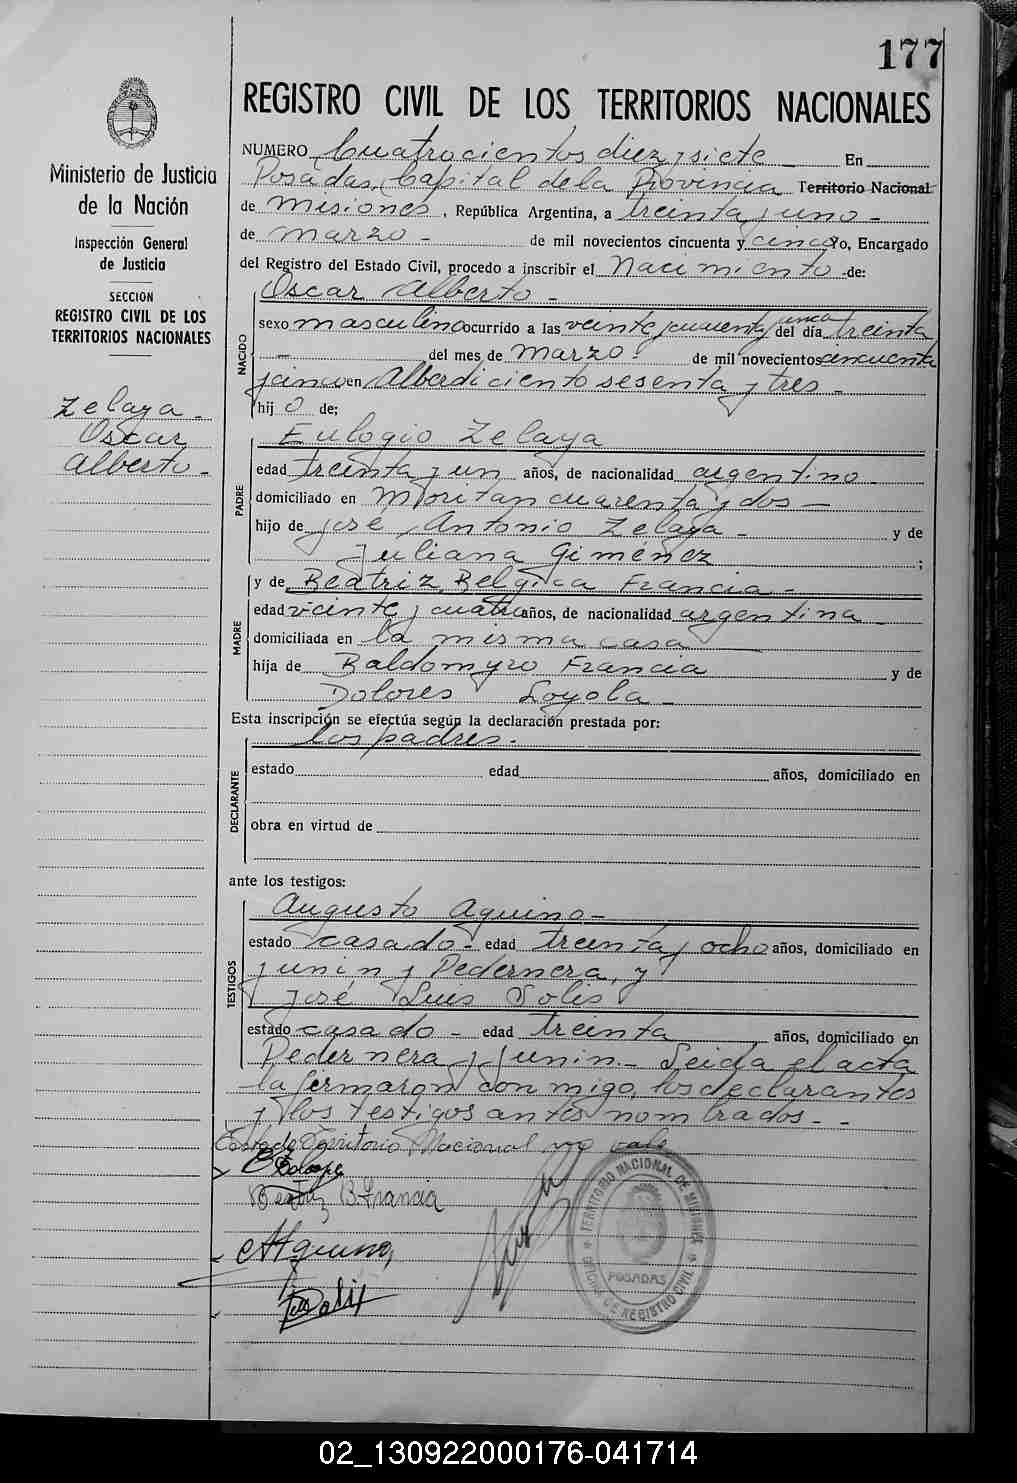 177
REGISTRO CIVIL DE LOS TERRITORIOS NACIONALES
Ministerio de Justicia
de la Nación
Inspección General
de Justicia
SECCION
REGISTRO CIVIL DE LOS
TERRITORIOS NACIONALES
Zelaya
Oscar
Alberto-
NUMERO Cuatrocientos diez y siete En
Posadas, Capital de la Provincia Territorio Nacional
de Misiones, República Argentina, a treinta y uno-
de marzo- de mil novecientos cincuenta y cinco Yo, Encargado
del Registro del Estado Civil, procedo a inscribir el Nacimiento de:
NACIDO
Oscar Alberto-
sexo masculino ocurrido a las veinte y cincuenta y cinco del día treinta
- del mes de marzo- de mil novecientos cincuenta
y cinco en Alberdi ciento sesenta y tres-
hij o de;
PADRE
Eulogio Zelaya
edad treinta y un años, de nacionalidad argentino
domiciliado en Moritan cuarenta y dos-
hijo de José Antonio Zelaya- y de
Juliana Giménez ;
MADRE
y de Beatriz Belgica Francia-
edad veinte y cuatro años, de nacionalidad argentina
domiciliada en la misma casa
hija de Baldomyro Francia y de
Dolores Loyola-
Esta inscripción se efectúa según la declaración prestada por:
los padres-
DECLARANTE
estado edad años, domiciliado en
obra en virtud de
ante los testigos:
TESTIGOS
Augusto Aquino-
estado casado- edad treinta y ocho años, domiciliado en
Junín y Pedernera, y
José Luis Solis
estado casado- edad treinta años, domiciliado en
Pedernera y Junin- Leida el acta
la firmaron conmigo, los declarantes
y los testigos antes nombrados.-
Testado Territorio Nacional no vale
Beatriz B. Francia
AAquino
Solis
TERRITORIO NACIONAL DE MISIONES
POSADAS
OFICINA DE REGISTRO CIVIL
02_130922000176-041714